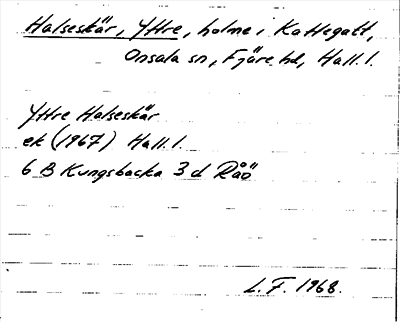 Halseskär, Yttre, holme i Kattegatt,
Onsala sn, Fjäre hd, Hall. l.
Yttre Halseskär
ek (1967) Hall. l.
6 B Kungsbacka 3 d Råö
L. F. 1968.